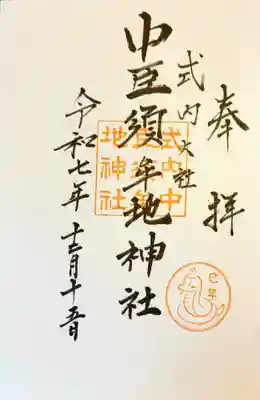 奉拝
式内大社
中臣須牟地神社
式内中
臣須牟
地神社
令和七年十二月十五日
巳年